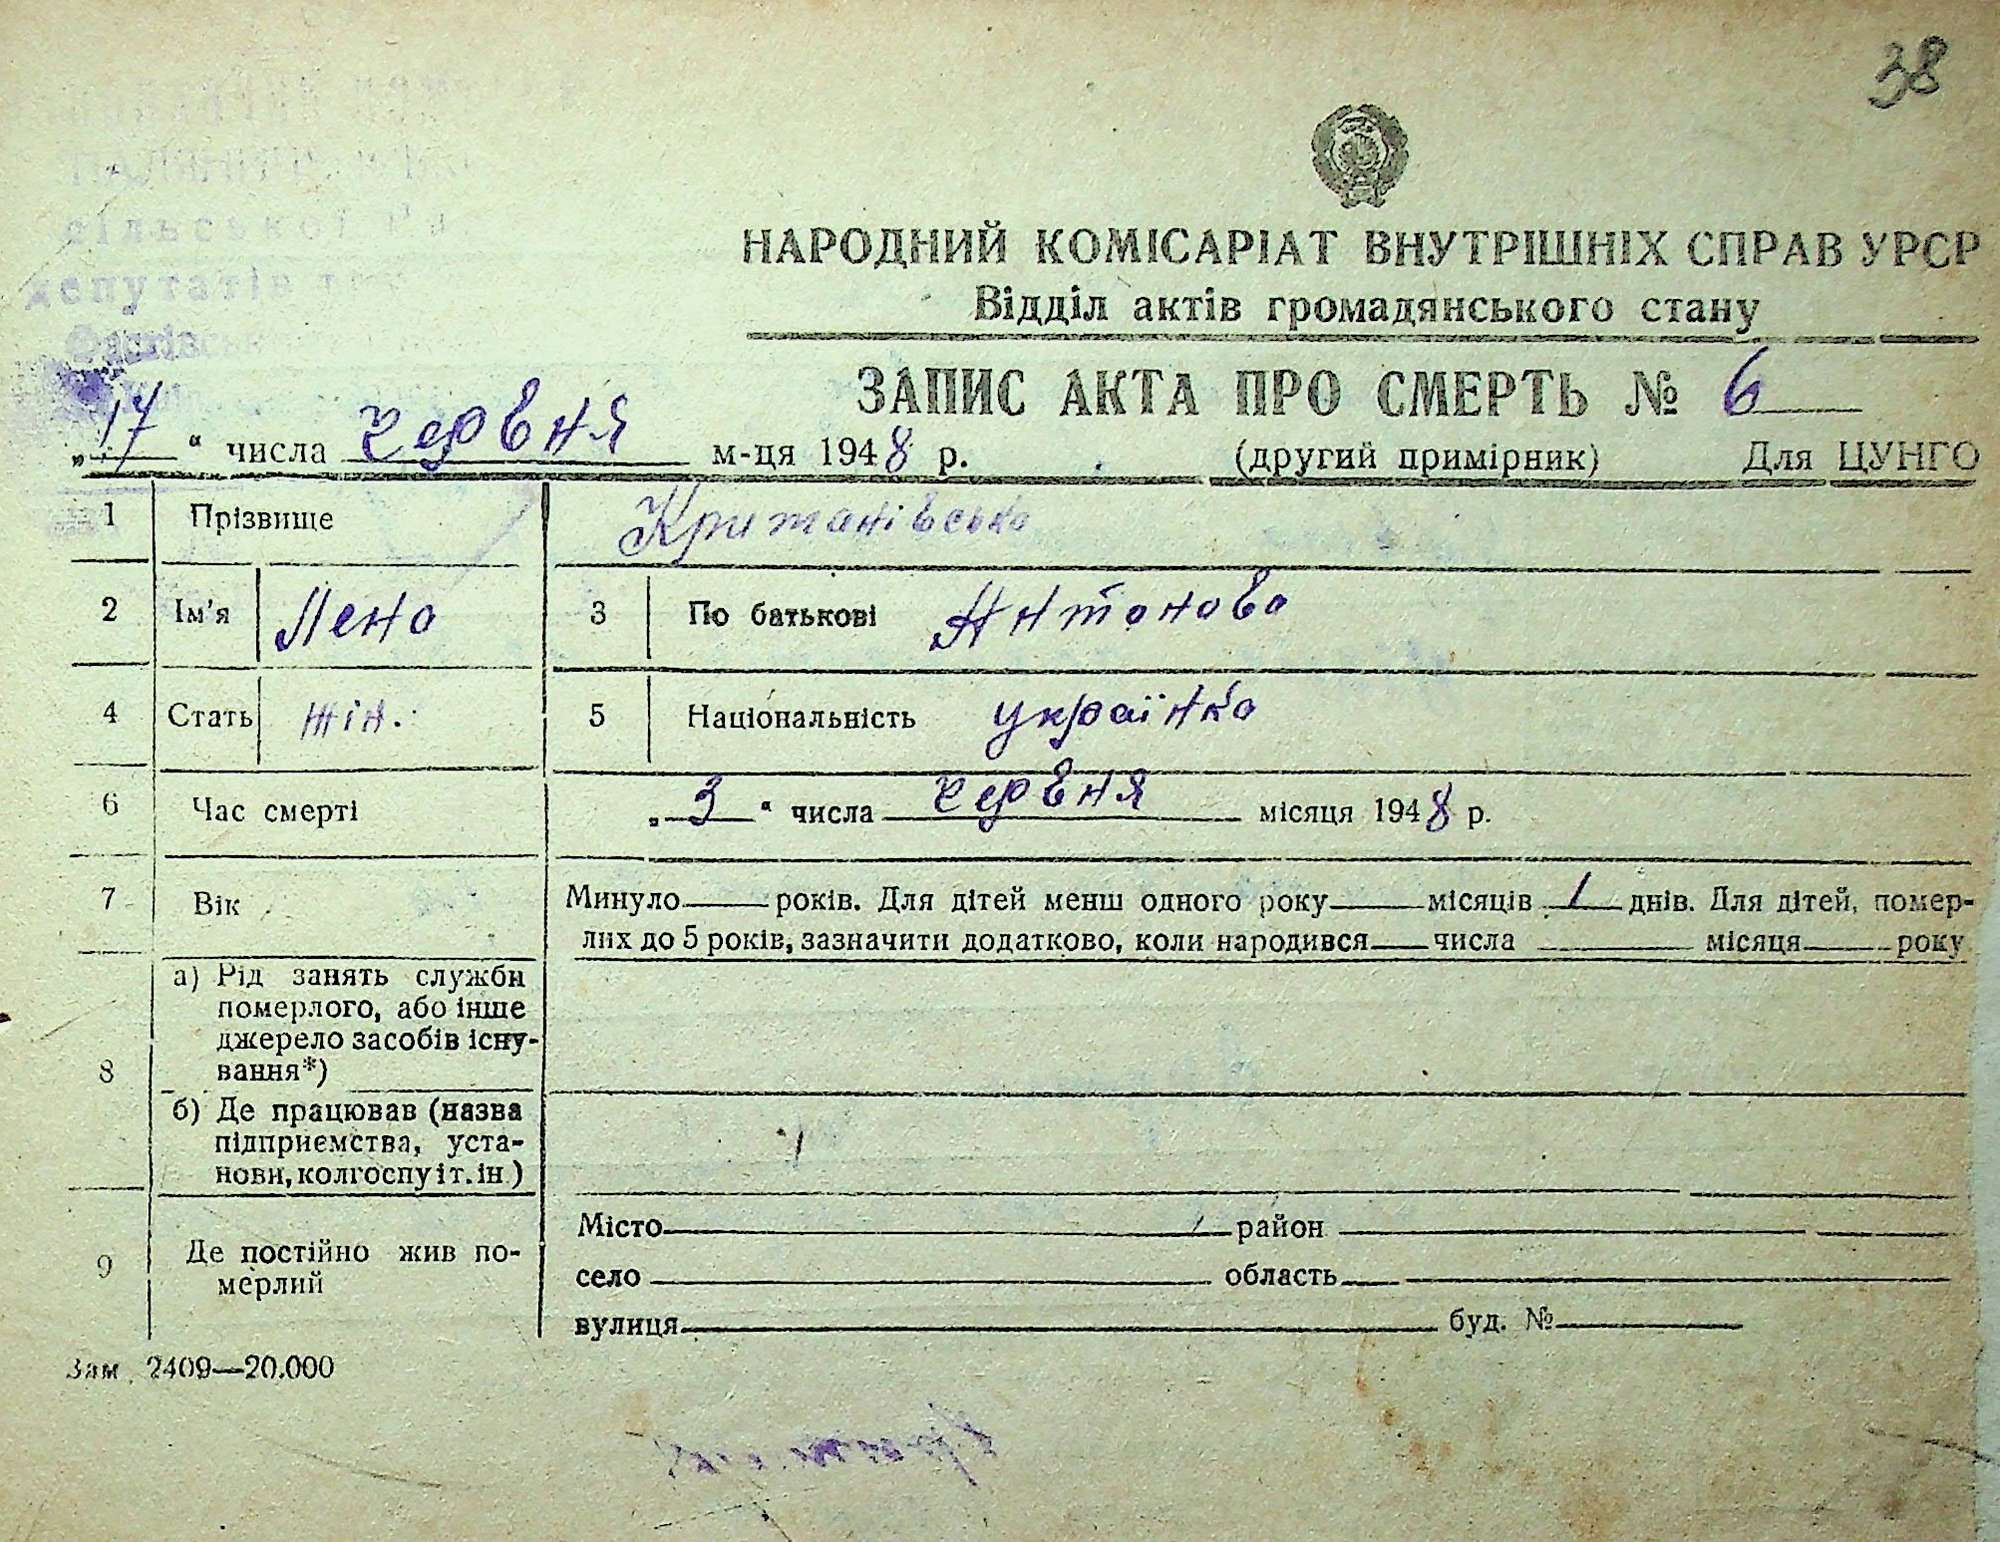 38
сільської
депутатів
НАРОДНИЙ КОМІСАРІАТ ВНУТРІШНІХ СПРАВ УРСР
Відділ актів громадянського стану
ЗАПИС АКТА ПРО СМЕРТЬ № 6
„17“ числа червня м-ця 1948 р. (другий примірник) Для ЦУНГО
1 Прізвище Крижанівсько
2 Ім'я Лєна 3 По батькові Антонова
4 Стать жін. 5 Національність українка
6 Час смерті „3“ числа червня місяця 1948 р.
7 Вік Минуло років. Для дітей менш одного року місяців 1 днів. Для дітей, помер-
лих до 5 років, зазначити додатково, коли народився числа місяця року
8 а) Рід занять служби
померлого, або інше
джерело засобів існу-
вання*)
б) Де працював (назва
підприємства, уста-
нови, колгоспу і т. ін)
9 Де постійно жив по-
мерлий
Місто район
село область
вулиця буд. №
Зам. 2409—20.000